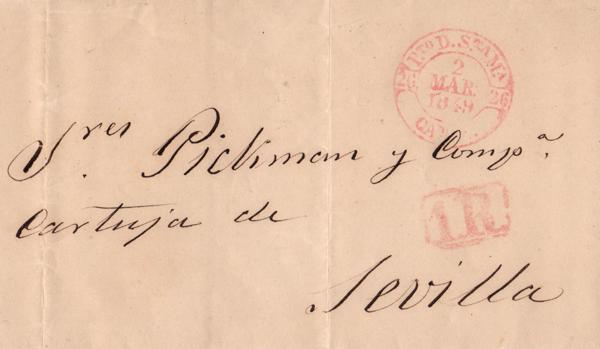 Pto D. Sta Ma
2
MAR.
1849
26
Sres Pickman y Compa.
Cartuja de
Sevilla
1R.